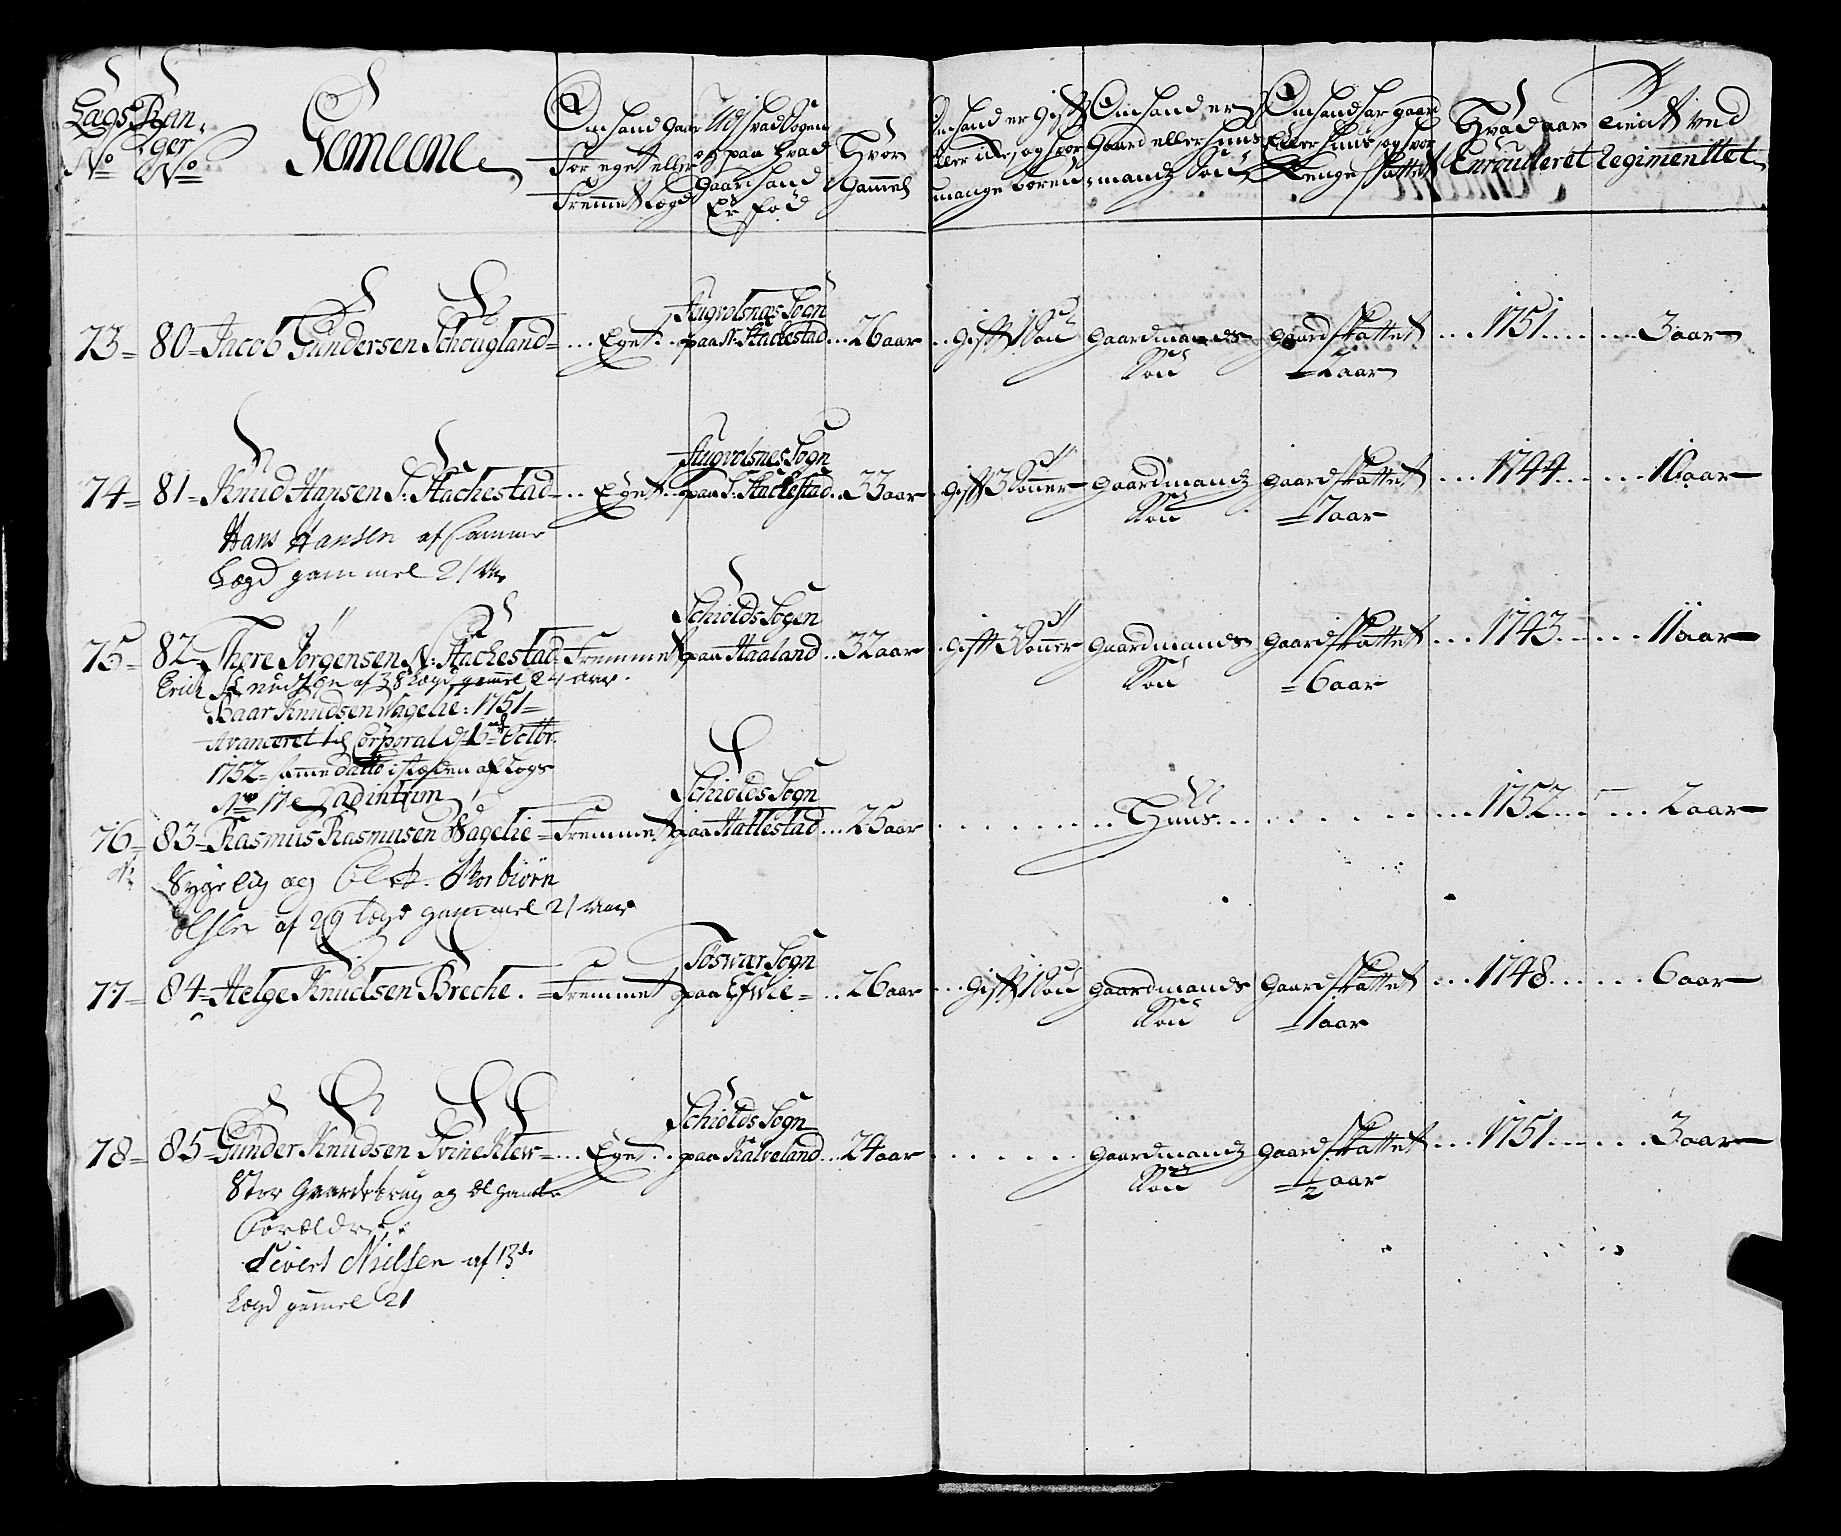 Lags Ran-
No ger
No
Gemeene
Om hand gaar
For eget eller
Fremmet Lægd
Udj hvad Sogen
og paa hvad
Gaard hand
Er fød
Hvor
Gammel
Om hand er gift
eller ikke, og hvor
mange børen
Om hand er
Gaard eller Huus
mands Søn
Om hand har gaard
Eller Huus, og hvor
Lenge skattet
Hvad aar
Enroulleret
tient ved
Regimenttet
73 = 80 = Jacob Gundersen Schougland = ... Eget ... Augvolsnæs Sogn
paa N: Hachestad ... 26 aar ... gift 1 Søn gaardmands
Søn gaard skattet
= 2 aar ... 1751 ... 3 aar
74 = 81 = Knud Hansen S: Hachestad ... Eget ... Augvolsnes Sogn
paa S: Hachestad ... 33 aar ... gift 3 Sønner gaardmands
Søn gaard skattet
= 7 aar ... 1744 ... 10 aar
Hans Hansen af Samme
Lægd gammel 21 aar
75 = 82 = Thore Jørgensen N: Hachestad = Fremmet Schiolds Sogen
paa Haaland ... 32 aar ... gift 3 Sønner gaardmands
Søn gaard skattet
= 6 aar ... 1743 ... 11 aar
Erich Knudsen af 38 Lægd gamel 24 aar.
Baar Knudsen Vagelie: 1751 =
Avanceret til Corporal d: 1 Octbr.
1752 = samme datto i stæden af Logs
No 17 ad intrim
76 = 83 = Rasmus Rasmusen Vagelie = Fremmet Schiolds Sogn
paa Hattestad ... 25 aar ... Huus ... 1752 ... 2 aar
Sygelig og Torbiørn
olsen af 29 lægd gammel 21 aar
77 = 84 = Helge Knudsen Breche = Fremmet Søswær Sogn
paa Efwie = .. 26 aar ... gift 1 Søn gaardmands
Søn gaard skattet
= 1 aar ... 1748 ... 6 aar
78 = 85 = Gunder Knudsen Svineklew = ... Eget ... Schiolds Sogn
paa Kalveland ... 24 aar ... gaardmands
Søn gaard skattet
= 1/2 aar ... 1751 ... 3 aar
Stor Gaardsbrug og gamle
Forældre
Sivert Nielsen af 13de
Lægd gamel 21